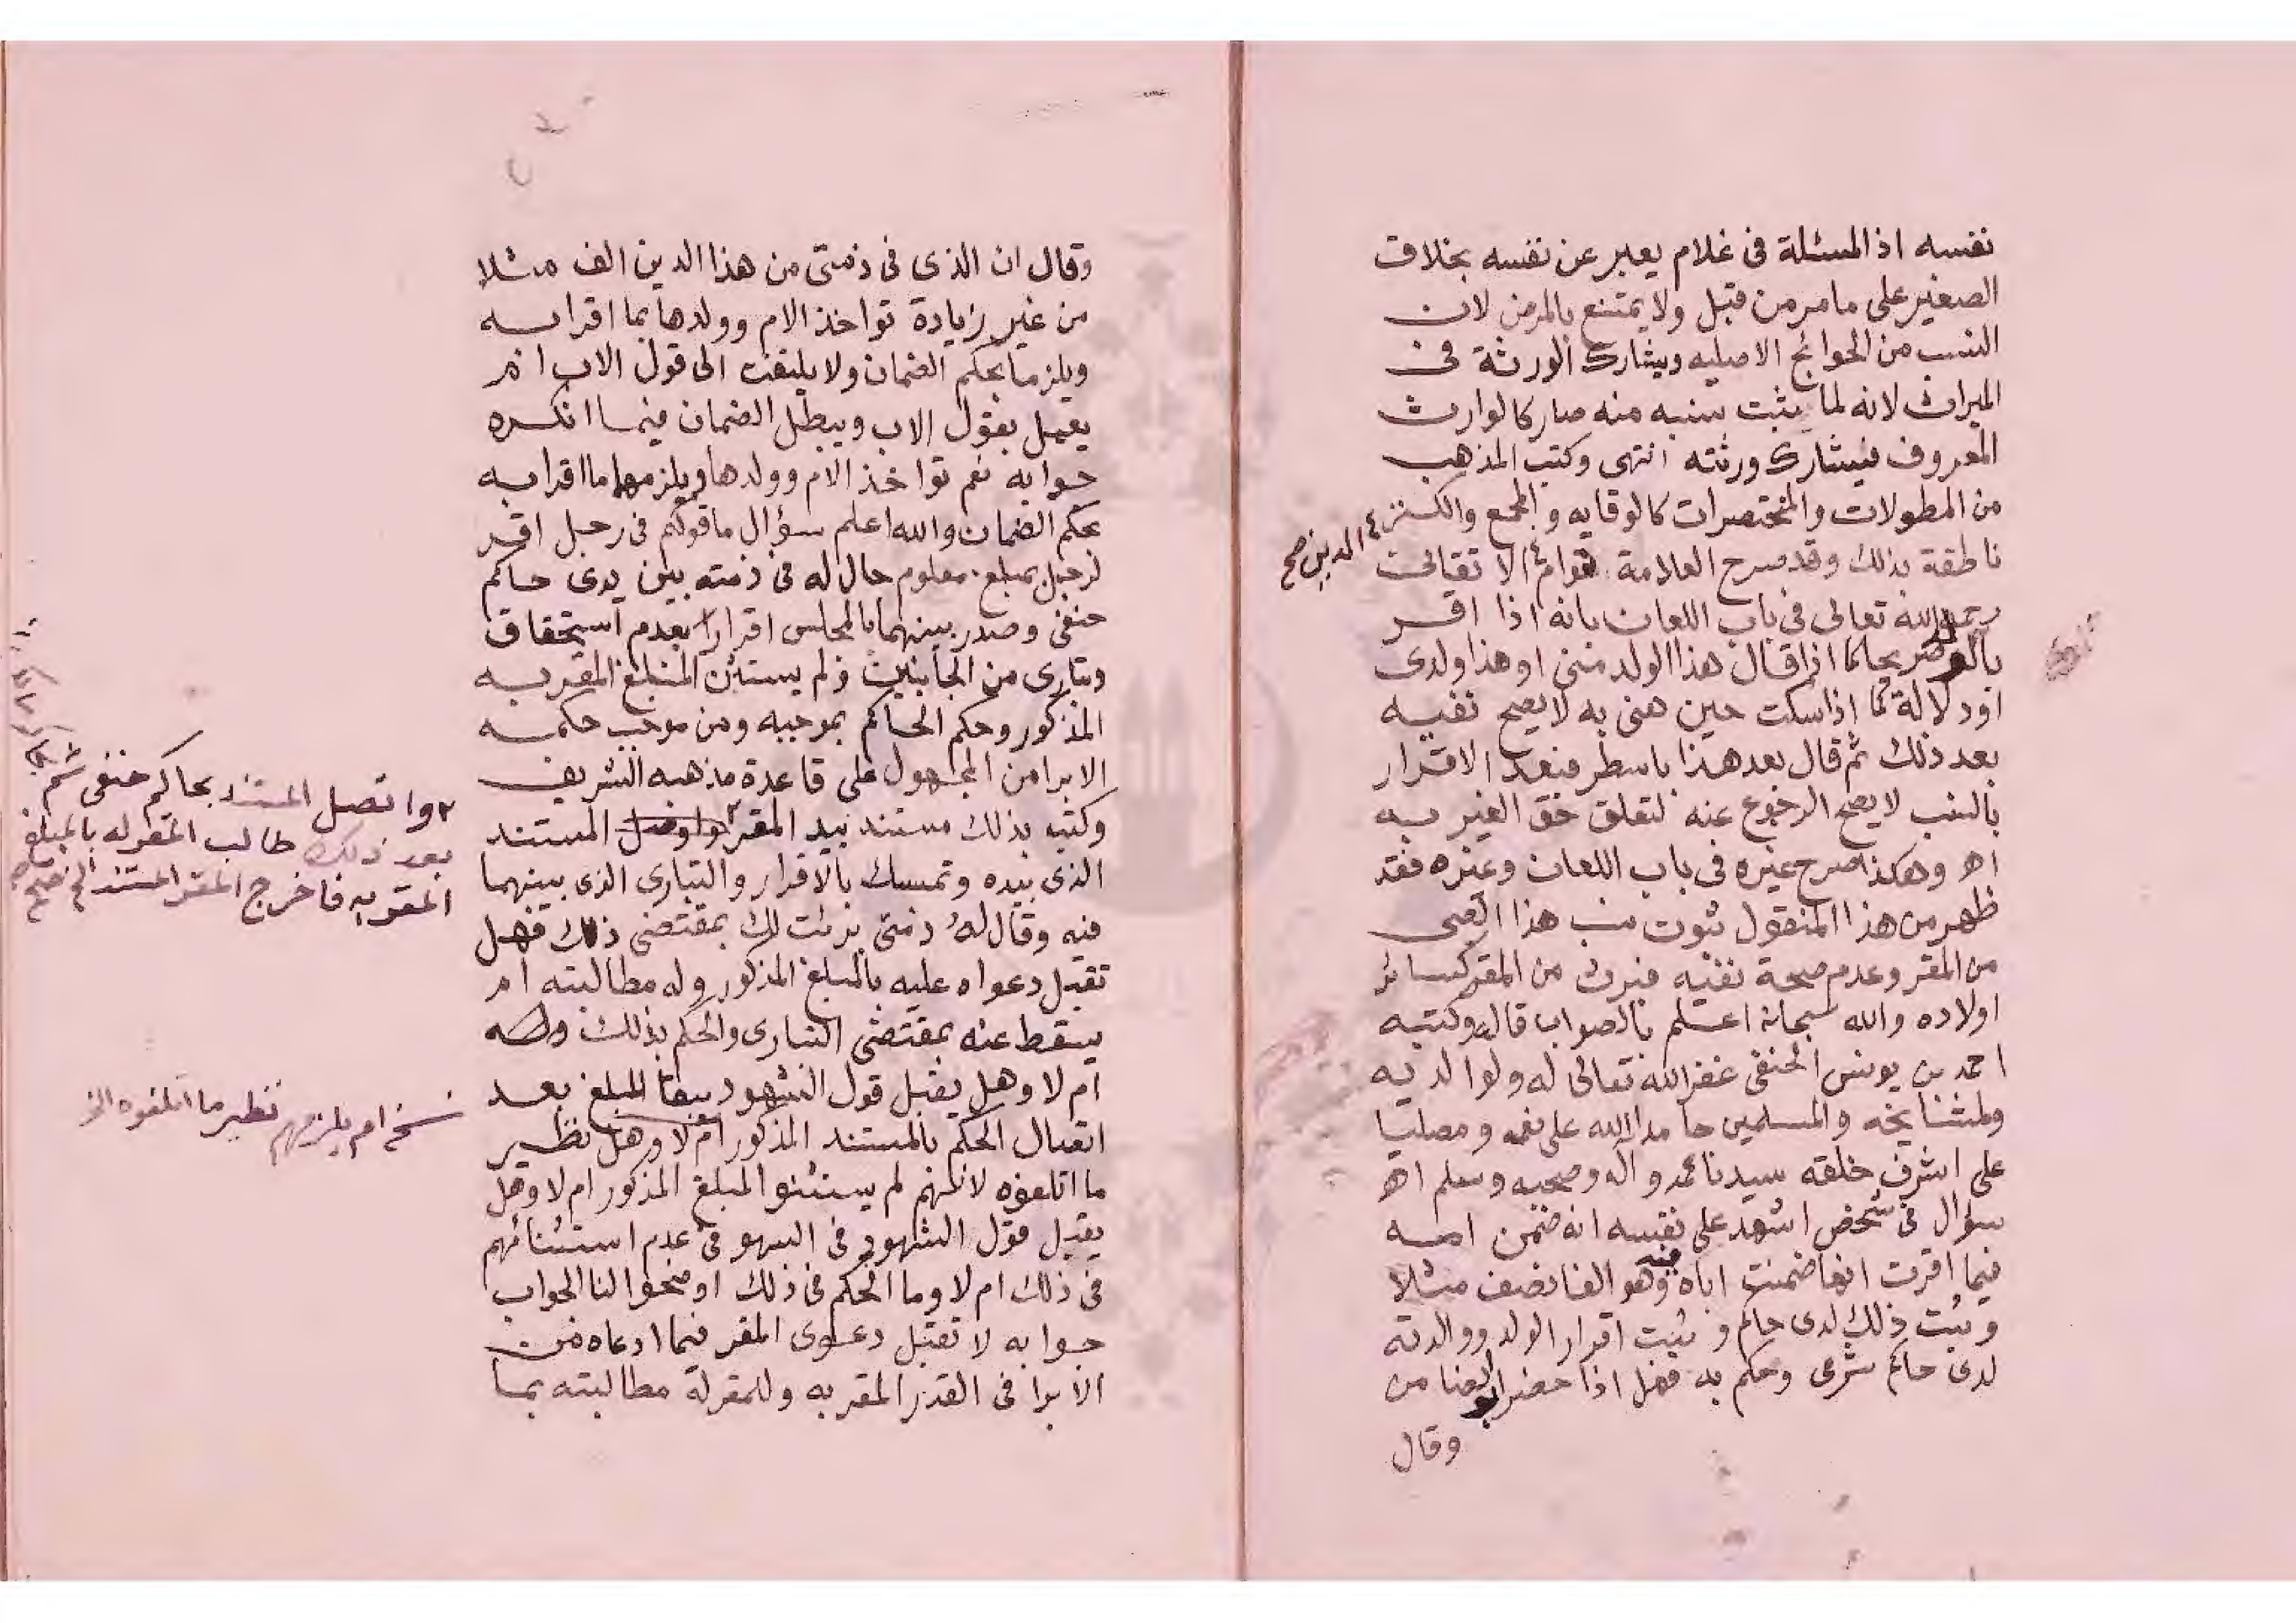 نفسه اذ المسئلة فى غلام يعبر عن نفسه بخلاف
الصغير على ما مر من قبل ولا يمتنع بالمرض لان
النسب من الحوائج الاصليه ويشارك الورثة فى
الميراث لانه لما يثبت نسبه منه صار كالوارث
المعروف فيشارك ورثته انتهى وكتب المذهب
من المطولات والمختصرات كالوقايه والمجمع والكنز
ناطقة بذلك وقد صرح العلامة قوام الاتقانى
الدين صح
رحمه الله تعالى فى باب اللعان بانه اذا اقر
بالولد صريحا كما اذا قال هذا الولد منى او هذا ولدى
او دلالة كما اذا سكت حين هنى به لا يصح نفيه
بعد ذلك ثم قال بعد هذا باسطر فبعد الاقرار
بالنسب لا يصح الرجوع عنه لتعلق حق الغير به
اه وهكذا صرح غيره فى باب اللعان وغيره فقد
ظهر من هذا المنقول ثبوت نسب هذا الصبى
من المقر وعدم صحة نفيه فيرث من المقر كسائر
اولاده والله سبحانه اعلم بالصواب قاله وكتبه
احمد بن يونس الحنفى غفر الله تعالى له ولوالديه
ولمشايخه والمسلمين حامدا الله على نعمه ومصليا
على اشرف خلقه سيدنا محمد وآله وصحبه وسلم اه
سؤال فى شخص اشهد على نفسه انه ضمن امه
فيما اقرت انها ضمنت اباه فيه وهو الفا نصف مثلا
وثبت ذلك لدى حاكم و ثبت اقرار الولد ووالدته
لدى حاكم شرعى وحكم به فهل اذا حضر ابو
وقال
وقال ان الذى فى ذمتى من هذا الدين الف مثلا
من غير زيادة تواخذ الام وولدها بما اقرا به
ويلزما بحكم الضمان ولا يلتفت الى قول الاب ام
يعمل بقول الاب ويبطل الضمان فيما انكره
جوابه نعم تواخذ الام وولدها ويلزمهما ما اقرا به
بحكم الضمان والله اعلم سؤال ما قولكم فى رجل اقر
لرجل بمبلغ معلوم حال له فى ذمته بين يدى حاكم
حنفى وصدر بينهما بالمجلس اقرارا بعدم استحقاق
وتبارى من الجانبين ولم يستثن المبلغ المقر به
المذكور وحكم الحاكم بموجبه ومن موجب حكمه
الابرا من المجهول على قاعدة مذهبه الشريف
وكتب بذلك مستند بيد المقر المستند
٢ واتصل المستند بحاكم حنفى ثم
بعد ذلك طالب المقر له بالمبلغ
المقر به فاخرج المقر المستند الخ صح
الذى بيده وتمسك بالاقرار والتبارى الذى بينهما
فيه وقال له ذمتى برئت لك بمقتضى ذلك فهل
تقبل دعواه عليه بالمبلغ المذكور وله مطالبته ام
يسقط عنه بمقتضى التبارى والحكم بذلك
ام لا وهل يقبل قول الشهود ببقا المبلغ بعد
اتصال الحكم بالمستند المذكور ام لا وهل نظير
نسخه ام يلزمهم نظير ما اتلفوه الخ
ما اتلفوه لانهم لم يستثنوا المبلغ المذكور ام لا وهل
يقبل قول الشهود فى السهو فى عدم استثنائهم
فى ذلك ام لا وما الحكم فى ذلك اوضحوا لنا الجواب
جوابه لا تقبل دعوى المقر فيما ادعاه من
الابرا فى القدر المقر به وللمقر له مطالبته بما